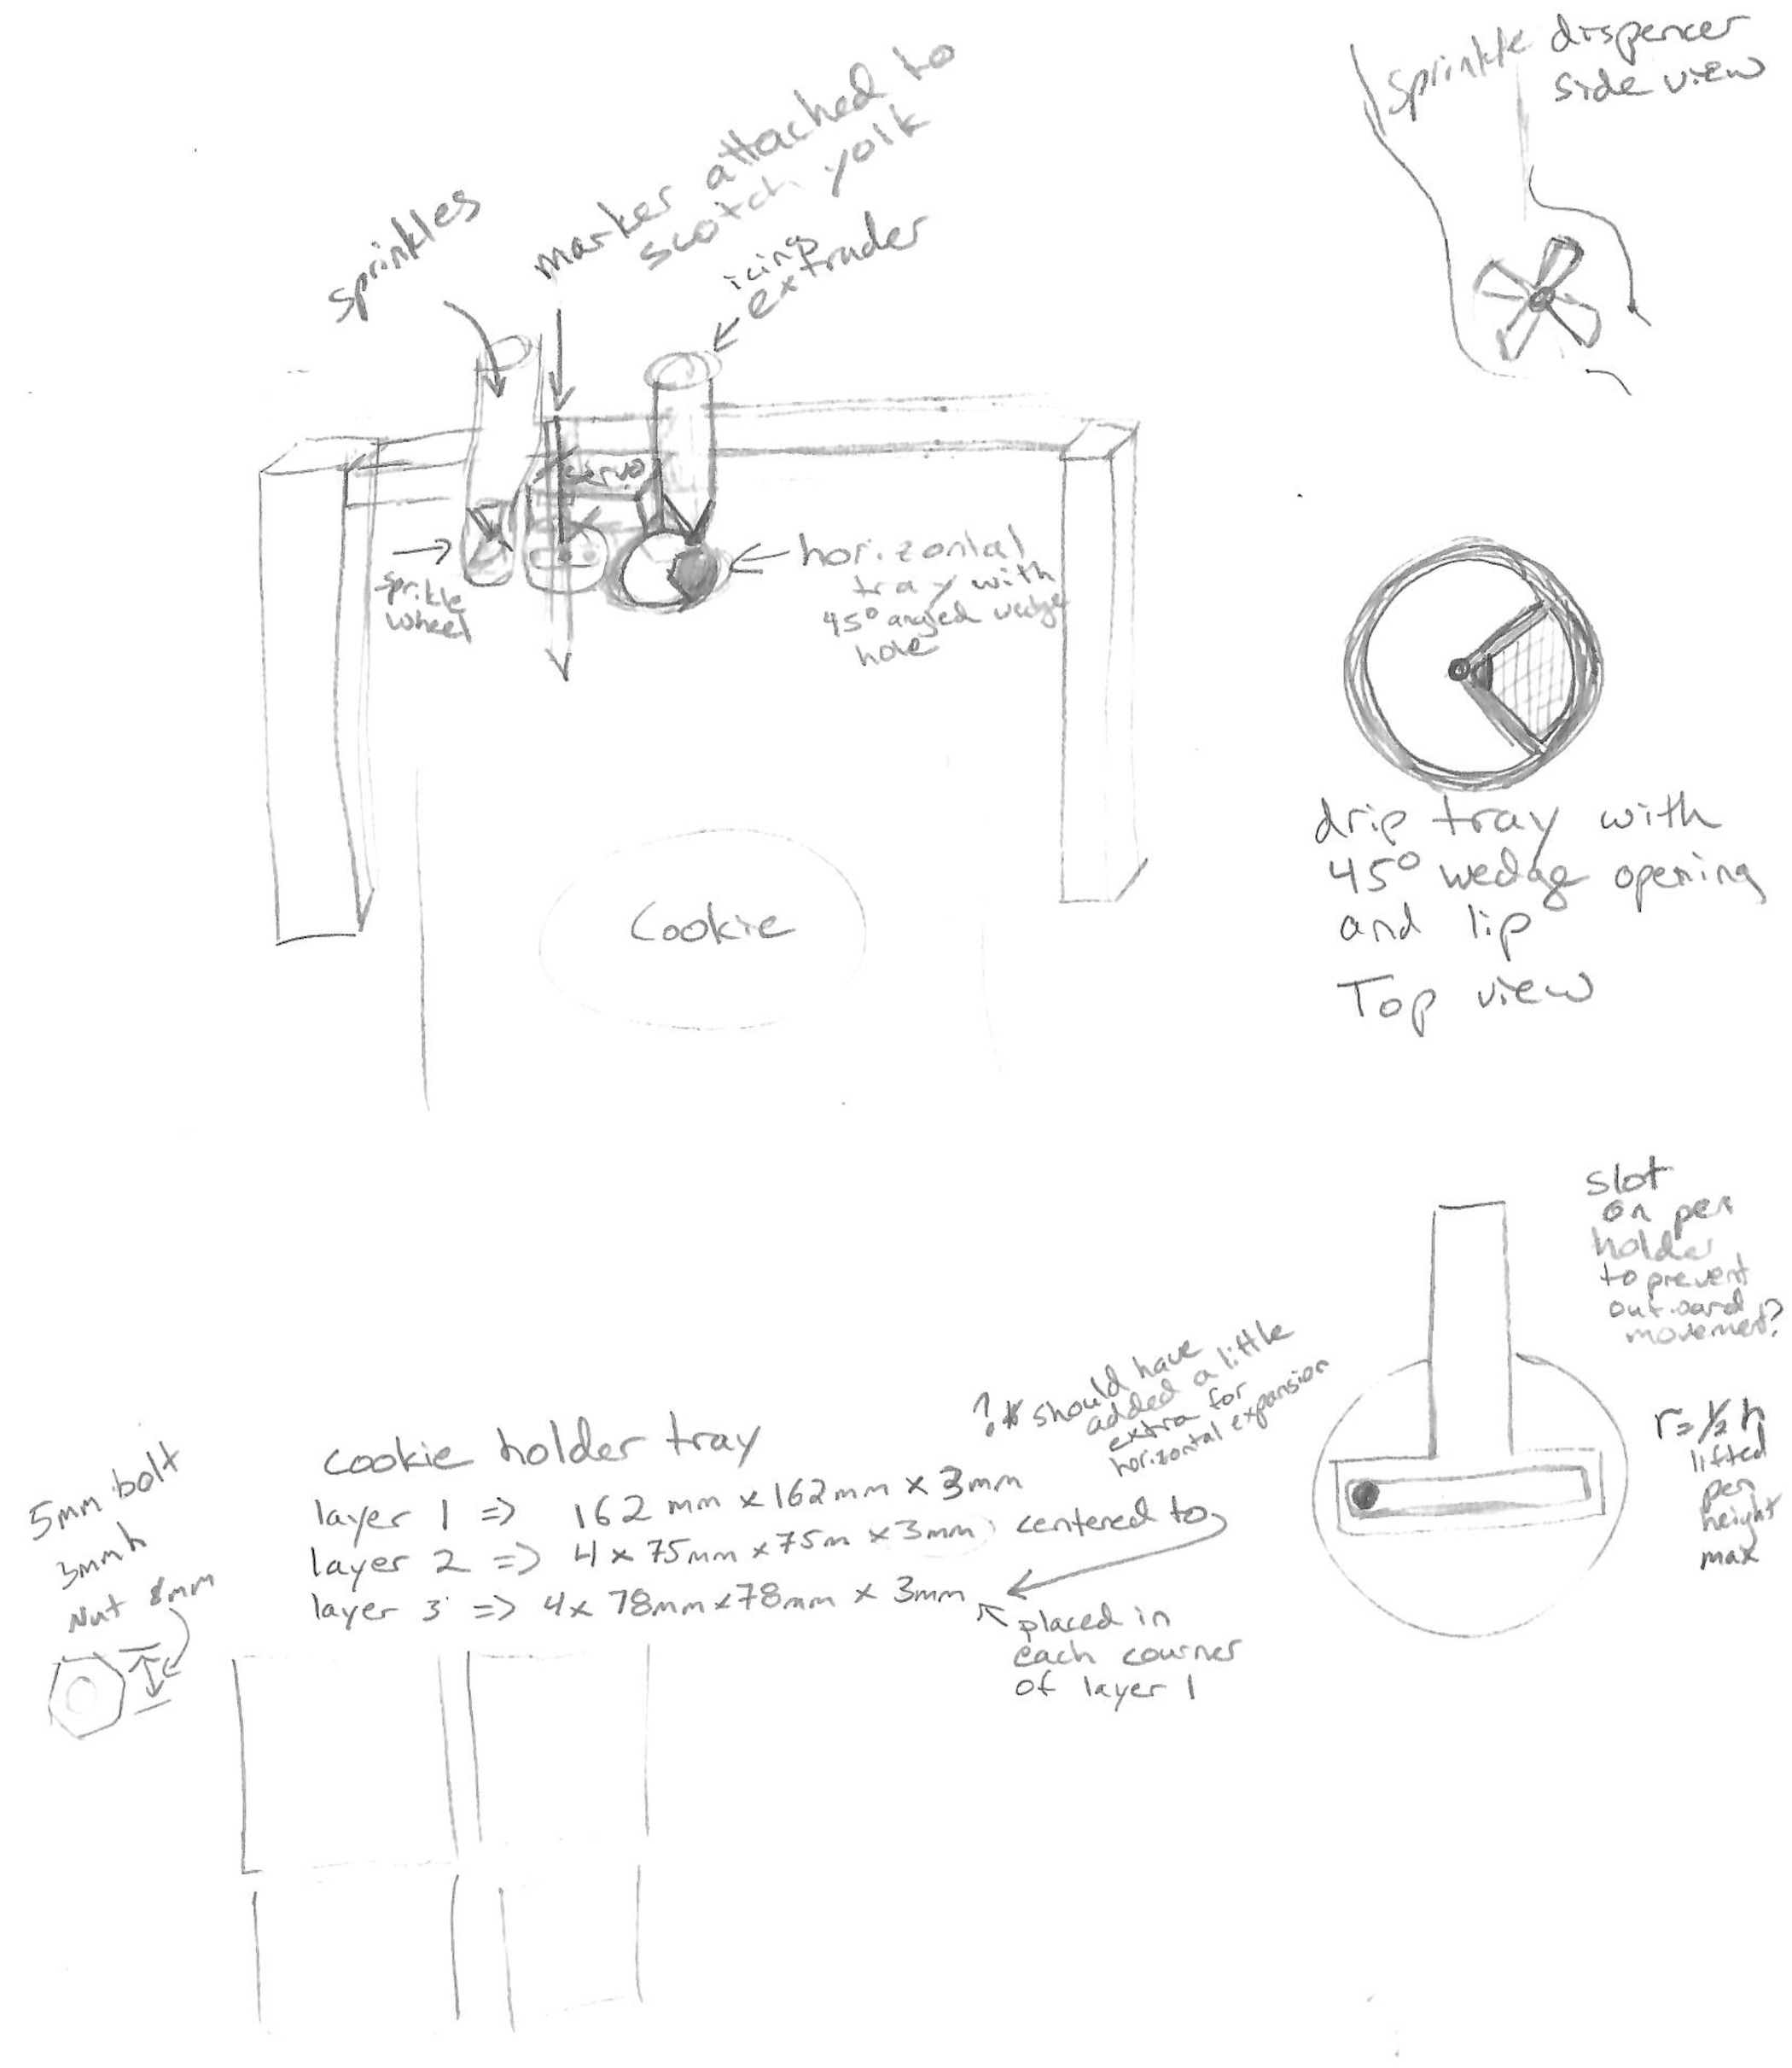 sprinkle dispencer
side view
sprinkles
marker attached to
scotch yolk
icing
extruder
servo
sprikle
wheel
horizontal
tray with
45° angled wedge
hole
Cookie
drip tray with
45° wedge opening
and lip
Top view
slot
on pen
holder
to prevent
outward
movement?
r=½ h
lifted
pen
height
max
?* should have
added a little
extra for
horizontal expansion
cookie holder tray
layer 1 => 162 mm x 162mm x 3mm
layer 2 => 4 x 75mm x 75m x 3mm centered to
layer 3 => 4x 78mm x 78mm x 3mm
placed in
each courner
of layer 1
5mm bolt
3mm h
Nut 8mm